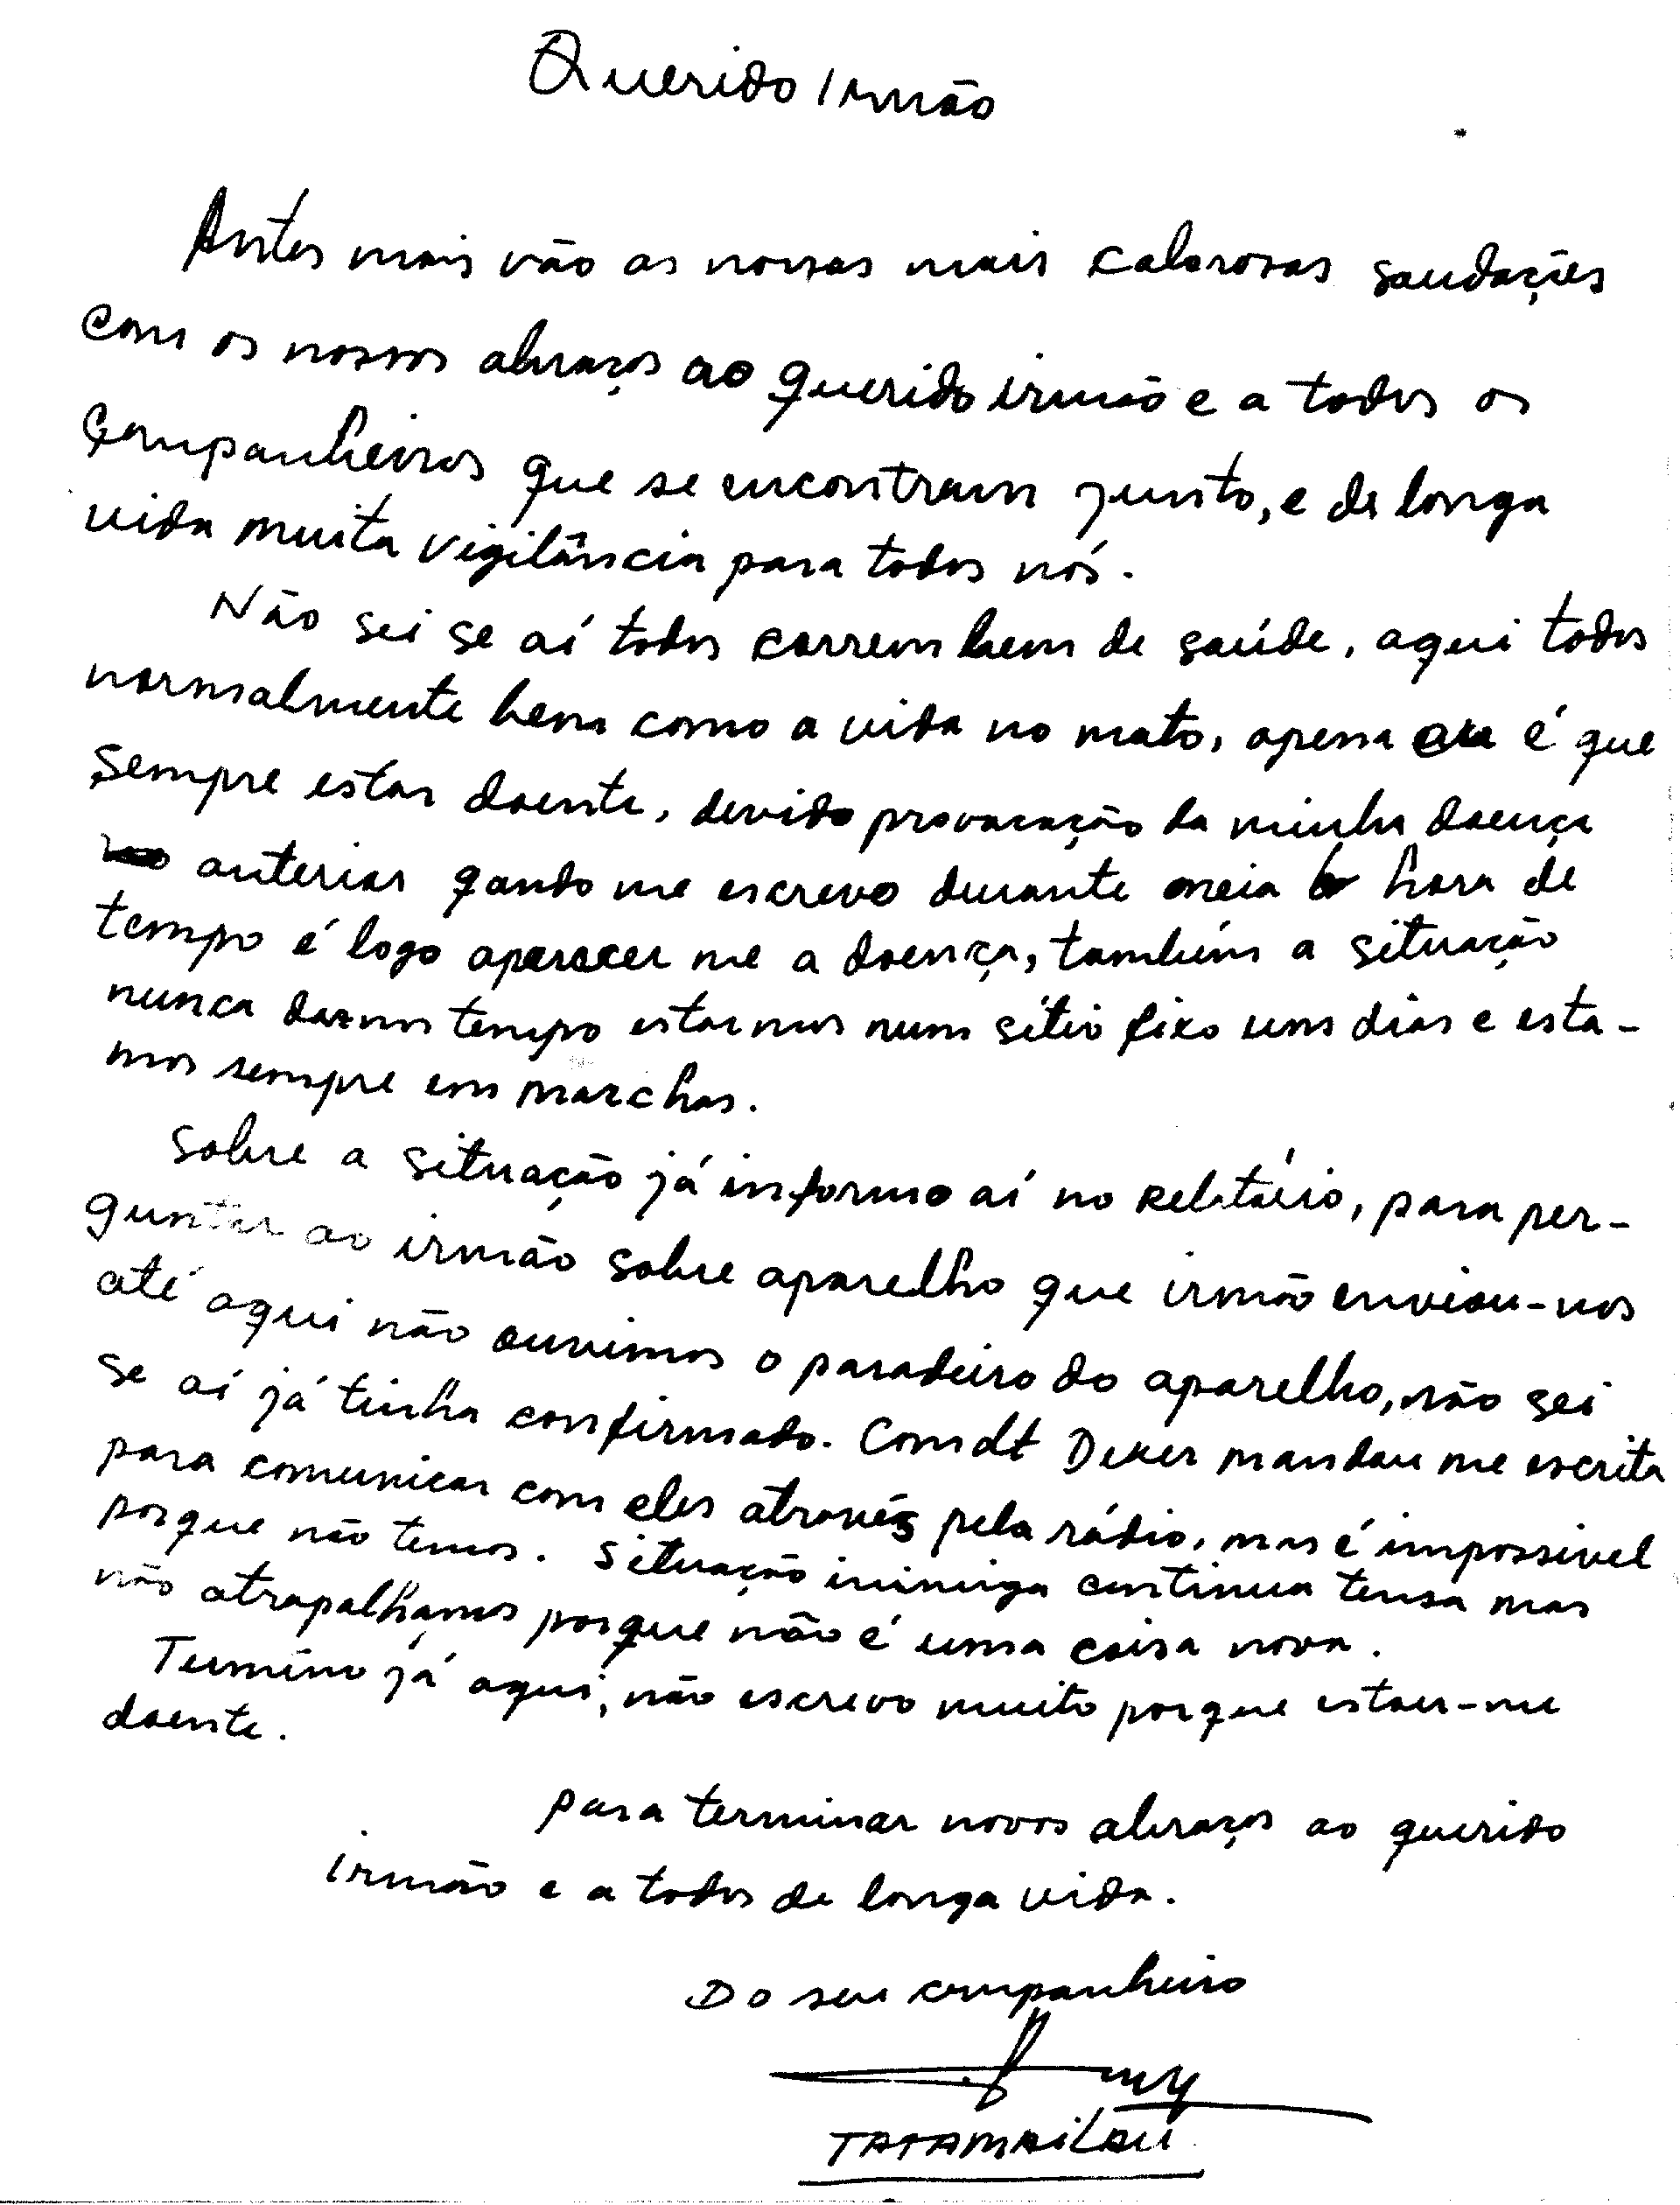 Querido Irmão
Antes mais vão as nossas mais calorosas saudações
com os nossos abraços ao querido irmão e a todos os
companheiros que se encontram junto, e de longa
vida muita vigilância para todos nós.
Não sei se aí todos correm bem de saúde, aqui todos
normalmente bem como a vida no mato, apena é que
sempre estar doente, devido provocação da minha doença
anterior qando me escrevo durante meia hora de
tempo é logo aparecer me a doença, também a situação
nunca darnos tempo estarmos num sítio fixo uns dias e esta-
mos sempre em marchas.
Sobre a situação já informo aí no Relatório, para per-
guntar ao irmão sobre aparelho que irmão enviou-nos
até aqui não ouvimos o paradeiro do aparelho, não sei
se aí já tinha confirmado. Comdt Deker mandou me escrita
para comunicar com eles através pela rádio, mas é impossivel
porque não temos. Situação inimiga continua tensa mas
não atrapalhamos porque não é uma coisa nova.
Termino já aqui, não escrevo muito porque estar-me
doente.
Para terminar novos abraços ao querido
irmão e a todos de longa vida.
Do seu companheiro
TATAMAILAU